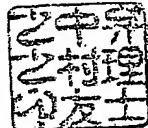 弁理士
中村友
之之印